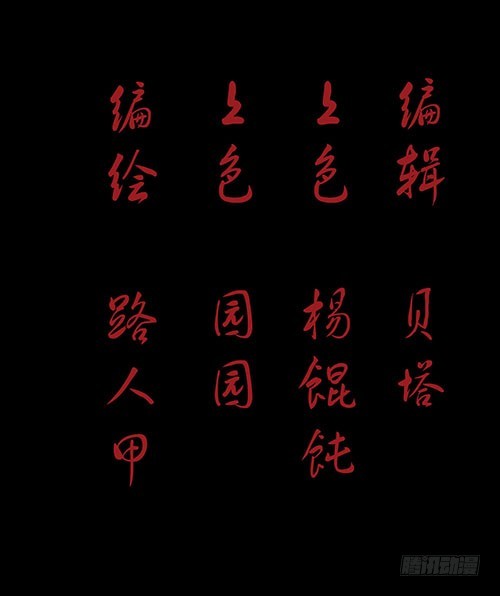 编绘 路人甲
上色 园园
上色 杨馄饨
编辑 贝塔
腾讯动漫